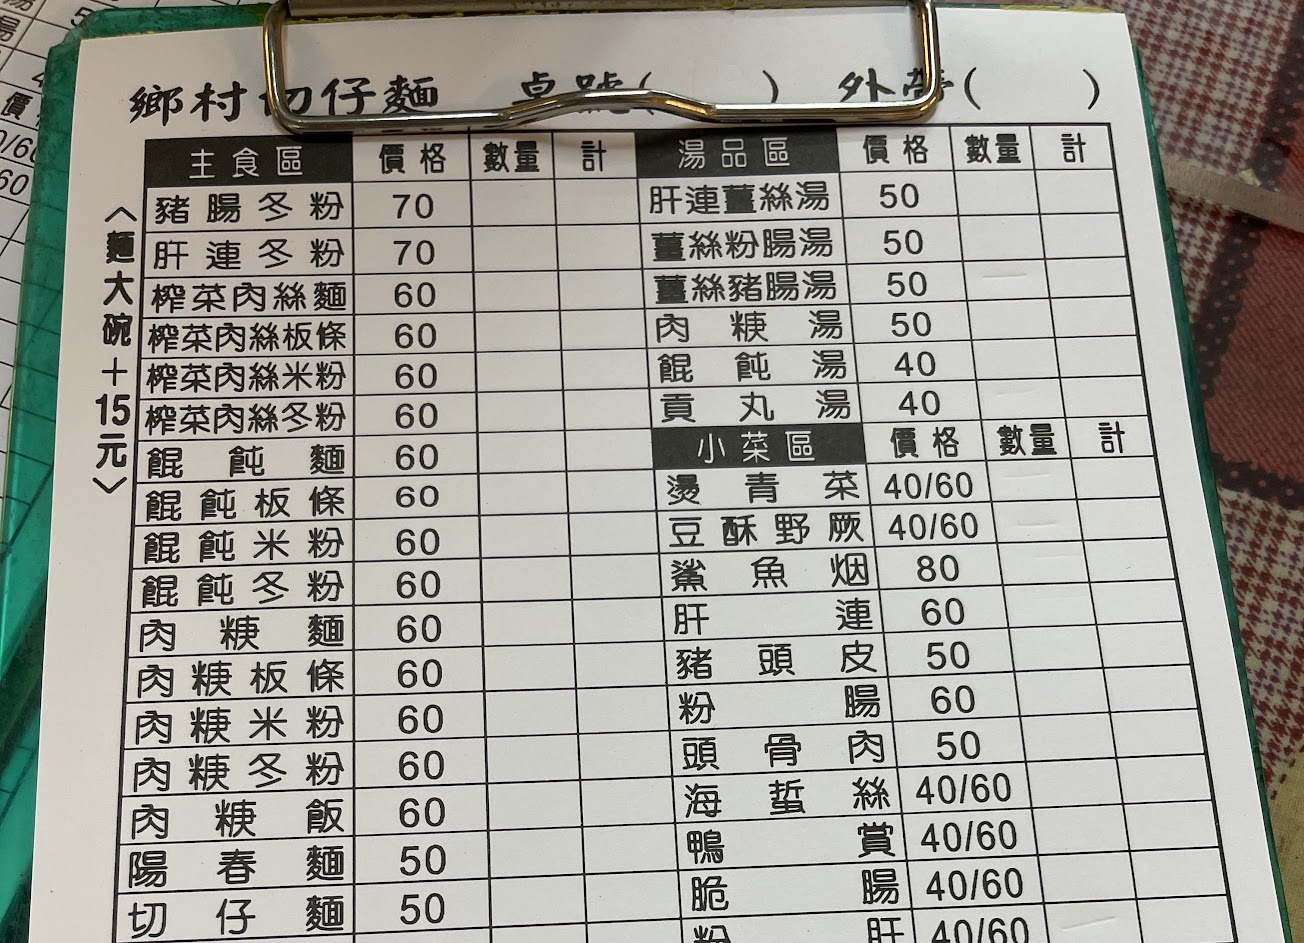 鄉村切仔麵 桌號( ) 外帶( )
〈麵大碗+15元〉
主食區 價格 數量 計
豬腸冬粉 70
肝連冬粉 70
榨菜肉絲麵 60
榨菜肉絲板條 60
榨菜肉絲米粉 60
榨菜肉絲冬粉 60
餛飩麵 60
餛飩板條 60
餛飩米粉 60
餛飩冬粉 60
肉焿麵 60
肉焿板條 60
肉焿米粉 60
肉焿冬粉 60
肉焿飯 60
陽春麵 50
切仔麵 50
湯品區 價格 數量 計
肝連薑絲湯 50
薑絲粉腸湯 50
薑絲豬腸湯 50
肉焿湯 50
餛飩湯 40
貢丸湯 40
小菜區 價格 數量 計
燙青菜 40/60
豆酥野蕨 40/60
鯊魚烟 80
肝連 60
豬頭皮 50
粉腸 60
頭骨肉 50
海蜇絲 40/60
鴨賞 40/60
脆腸 40/60
粉肝 40/60